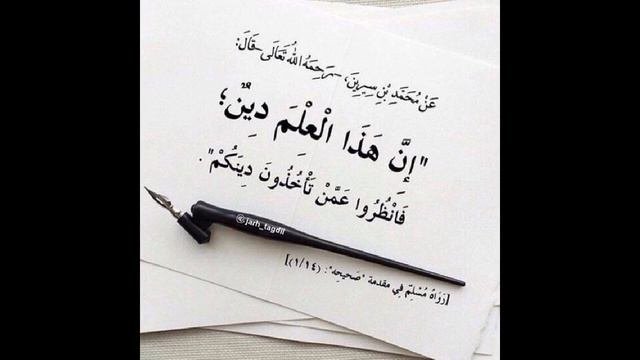 عَنْ مُحَمَّدِ بْنِ سِيرِينَ، -رَحِمَهُ اللهُ تَعَالَى- قَالَ:
"إِنَّ هَذَا الْعِلْمَ دِينٌ؛
فَانْظُرُوا عَمَّنْ تَأْخُذُونَ دِينَكُمْ".
@jarh_tagdil
[رَوَاهُ مُسْلِمٌ فِي مقدمة "صَحِيحِه": (١/١٤)]